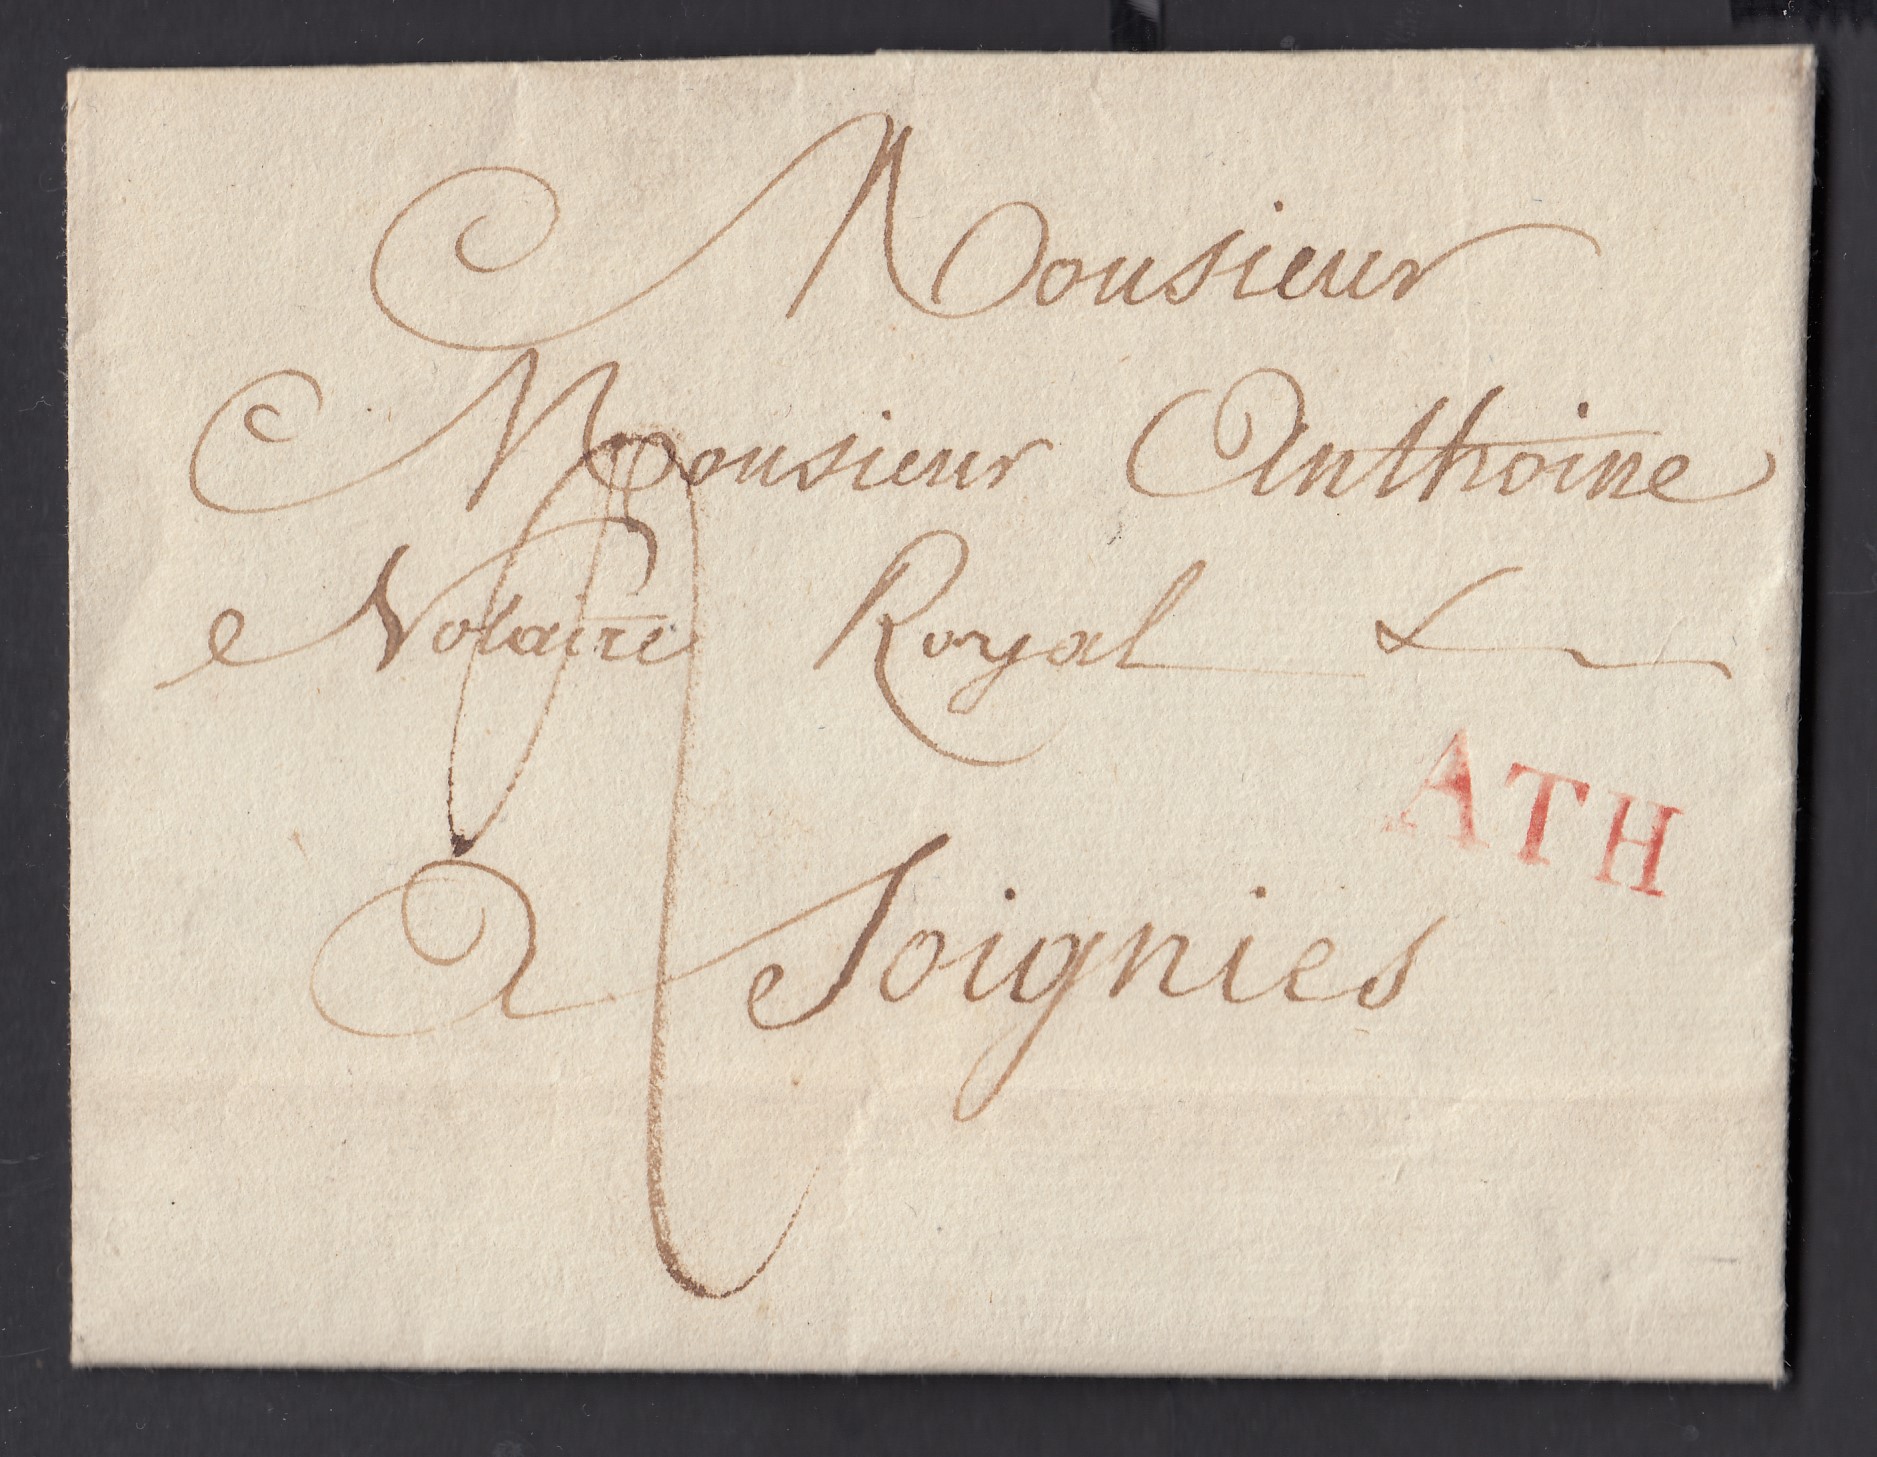 Monsieur
Monsieur Anthoine
Notaire Royal &
ATH
A Soignies